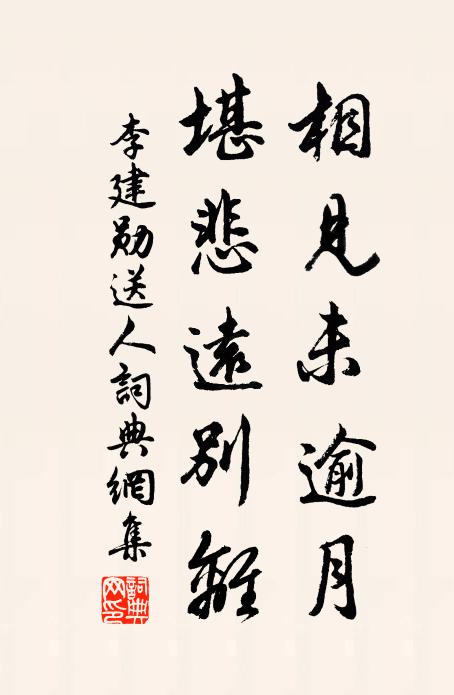 相見未逾月
堪悲遠別離
李建勛送人詞典網集
詞典網印